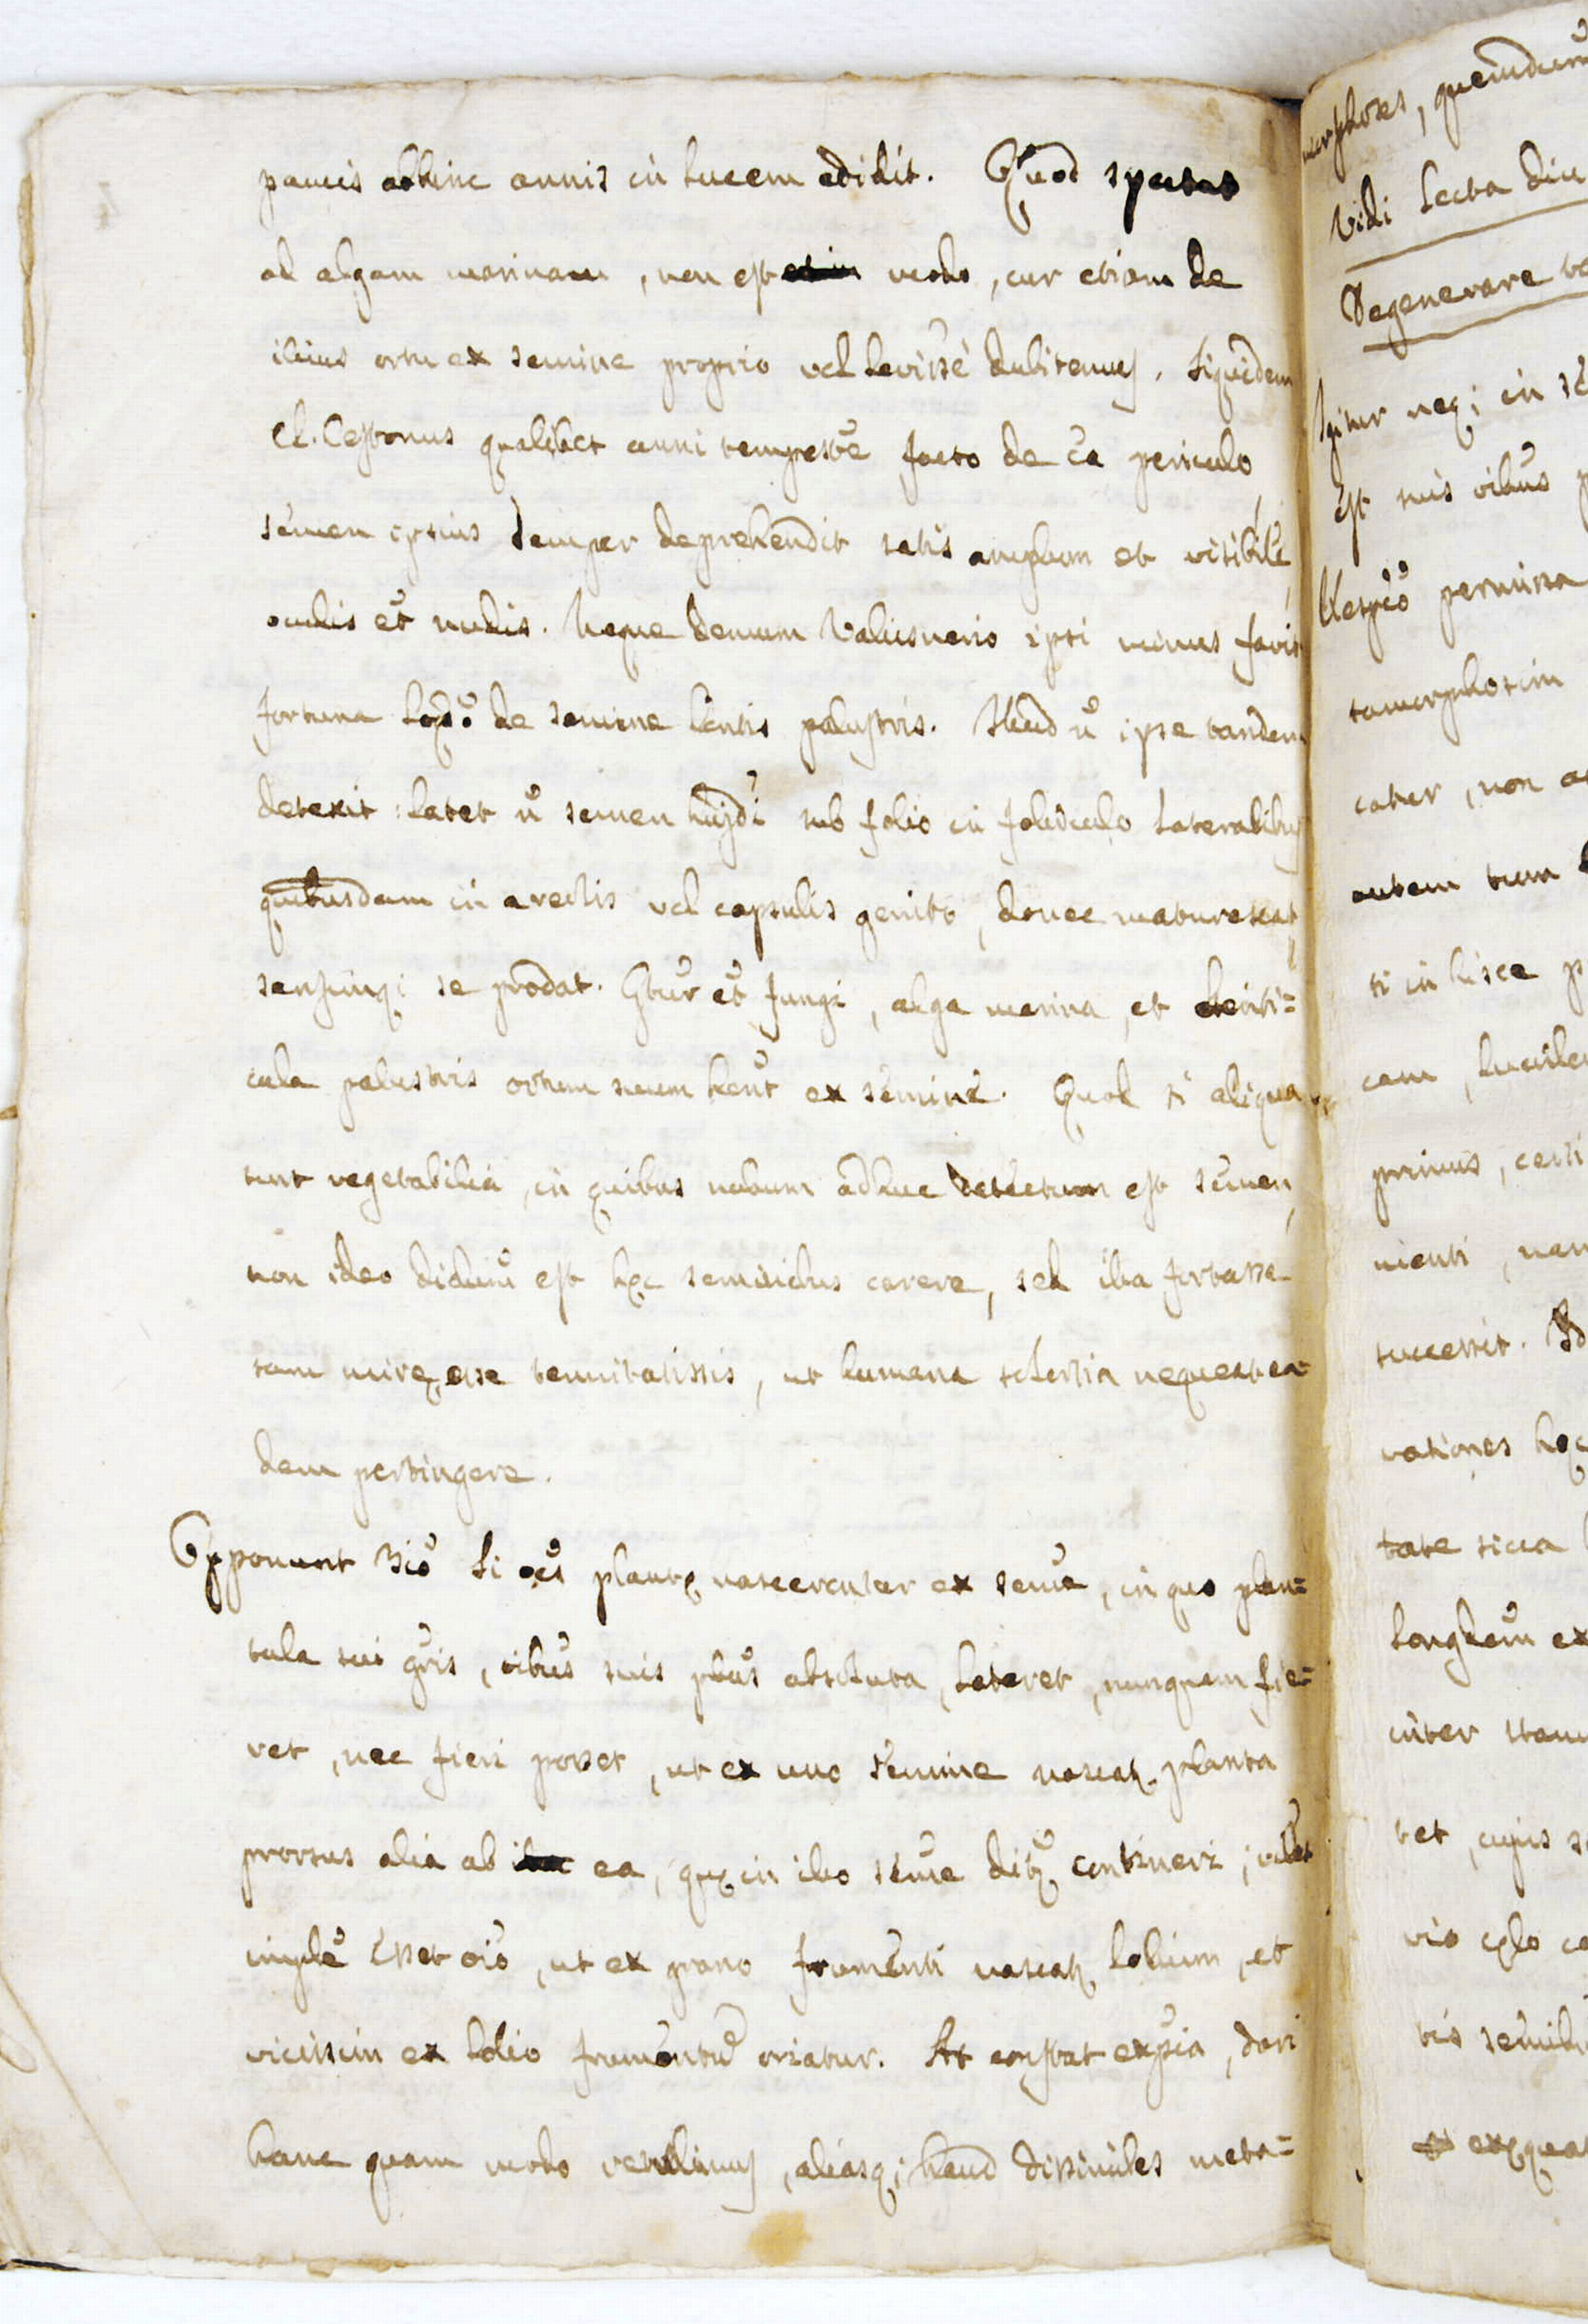 paucis abhinc annis in lucem edidit. Quod spectat
ad algam marinam, non est modo, cur etiam de
illius ortu ex semine proprio vel levissè dubitemus. Siquidem
Cl. Cestonus qualibet anni tempestẽ facto de ea periculo,
semen ipsius semper deprehendit satis amplum et visibile,
oculis et̃ nudis. Neque demum Valisnerio ipsi minus favit
fortuna de semine lentis palustris. Illud ñ ipse tandem
detexit: latet ñ semen hujdi sub folio in folliculo lateralibus
quibusdam in areolis vel capsulis genito, donec maturescat
sensimq; se prodat. Gtur et̃ fungi, alga marina, et lenti=
cula palustris ortum suum hent̃ ex semine. Quod si aliqua
sunt vegetabilia, in quibus nullum adhuc detectum est semen,
non ideo dicdum̃ est hęc seminibus carere, sed illa fortasse
tam mirę esse tenuitatissis, ut humana solertia nequeat ea=
dem pertingere.
Opponunt 3iõ Si oẽs plantę nascerentur ex semẽ, in quo plan=
tula sui gñis, oibus̃ suis ptbus̃ absoluta, lateret, nunquam fie=
ret, nec fieri posset, ut ex uno semine nascatr planta
prorsus alia ab ea, quę in illo semẽ dicitr contineri; velut
implẽ esset oiõ, ut ex grano frumenti nascatr lolium, et
vicissim ex lolio frumentũ oriatur. At constat expẽia, dari
hanc quam modo retulimus, aliasq; haud dissimiles meta=
morphoses, quemdam̃
Vidi lecta diu
Degenerare
Igitur neq; in
Est suis oibus̃
permissa
tamorphosim
catur, non
autem tum
si in hisce
cam,
primus, certi
nienti, nam
successit.
vationes hęc
tate sicca
ex
inter
tet, cujus
vio cęlo
tis
exęquat